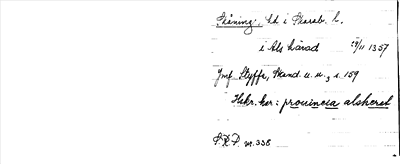 Skåning, hd i Skarab. l.
i Als härad 29/11 1357
Jmf. Styffe, Skand. u. u., s. 159
Hskr. har: prouincia alsheret
S.R.P. nr. 338